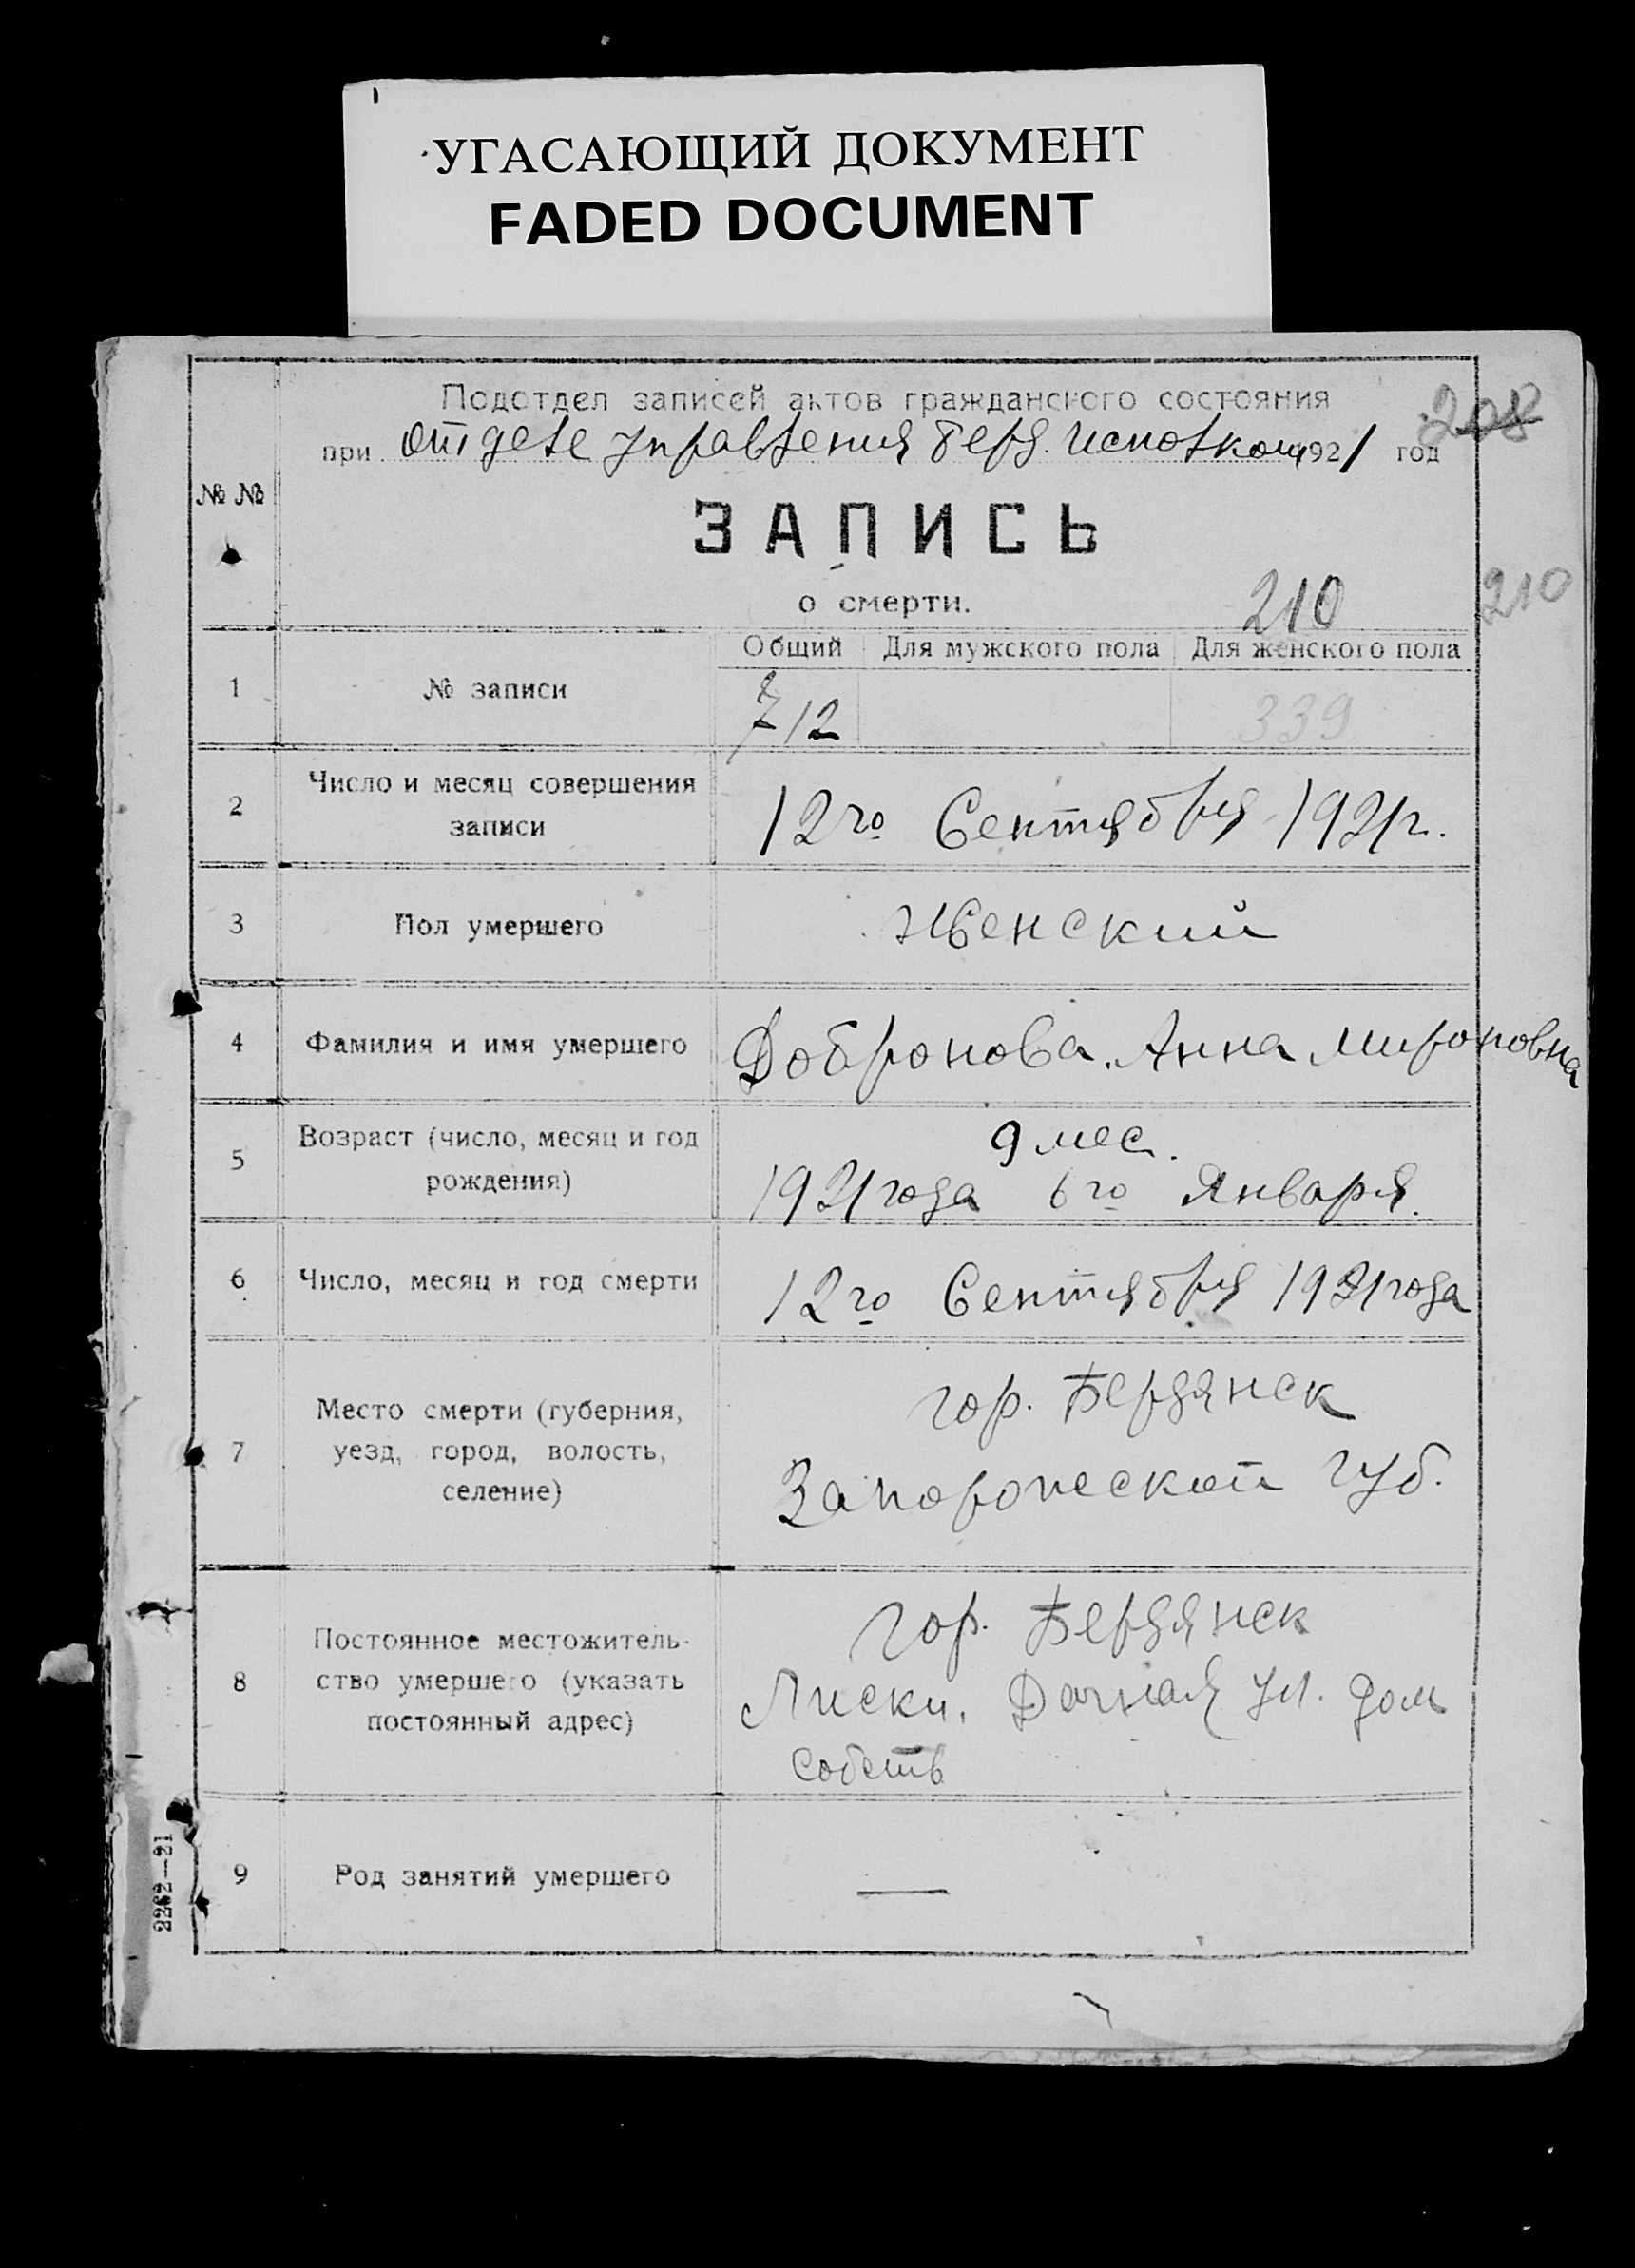 УГАСАЮЩИЙ ДОКУМЕНТ
FADED DOCUMENT
Подотдел записей актов гражданского состояния
208
при отделе управления Берд. Исполкома 1921 год
№ №
ЗАПИСЬ
о смерти.
210
210
Общий Для мужского пола Для женского пола
1 № записи 712 339
2 Число и месяц совершения
записи
12го Сентября 1921г.
3 Пол умершего Женский
4 Фамилия и имя умершего Добронова Анна Мироновна
5 Возраст (число, месяц и год
рождения)
9 мес.
1921 года 6го Января.
6 Число, месяц и год смерти 12го Сентября 1921 года
7 Место смерти (губерния,
уезд, город, волость,
селение)
гор. Бердянск
Запорожеской губ.
8 Постоянное местожитель-
ство умершего (указать
постоянный адрес)
гор. Бердянск
Лиски, Дачная ул. дом
собств
9 Род занятий умершего —
2262—21